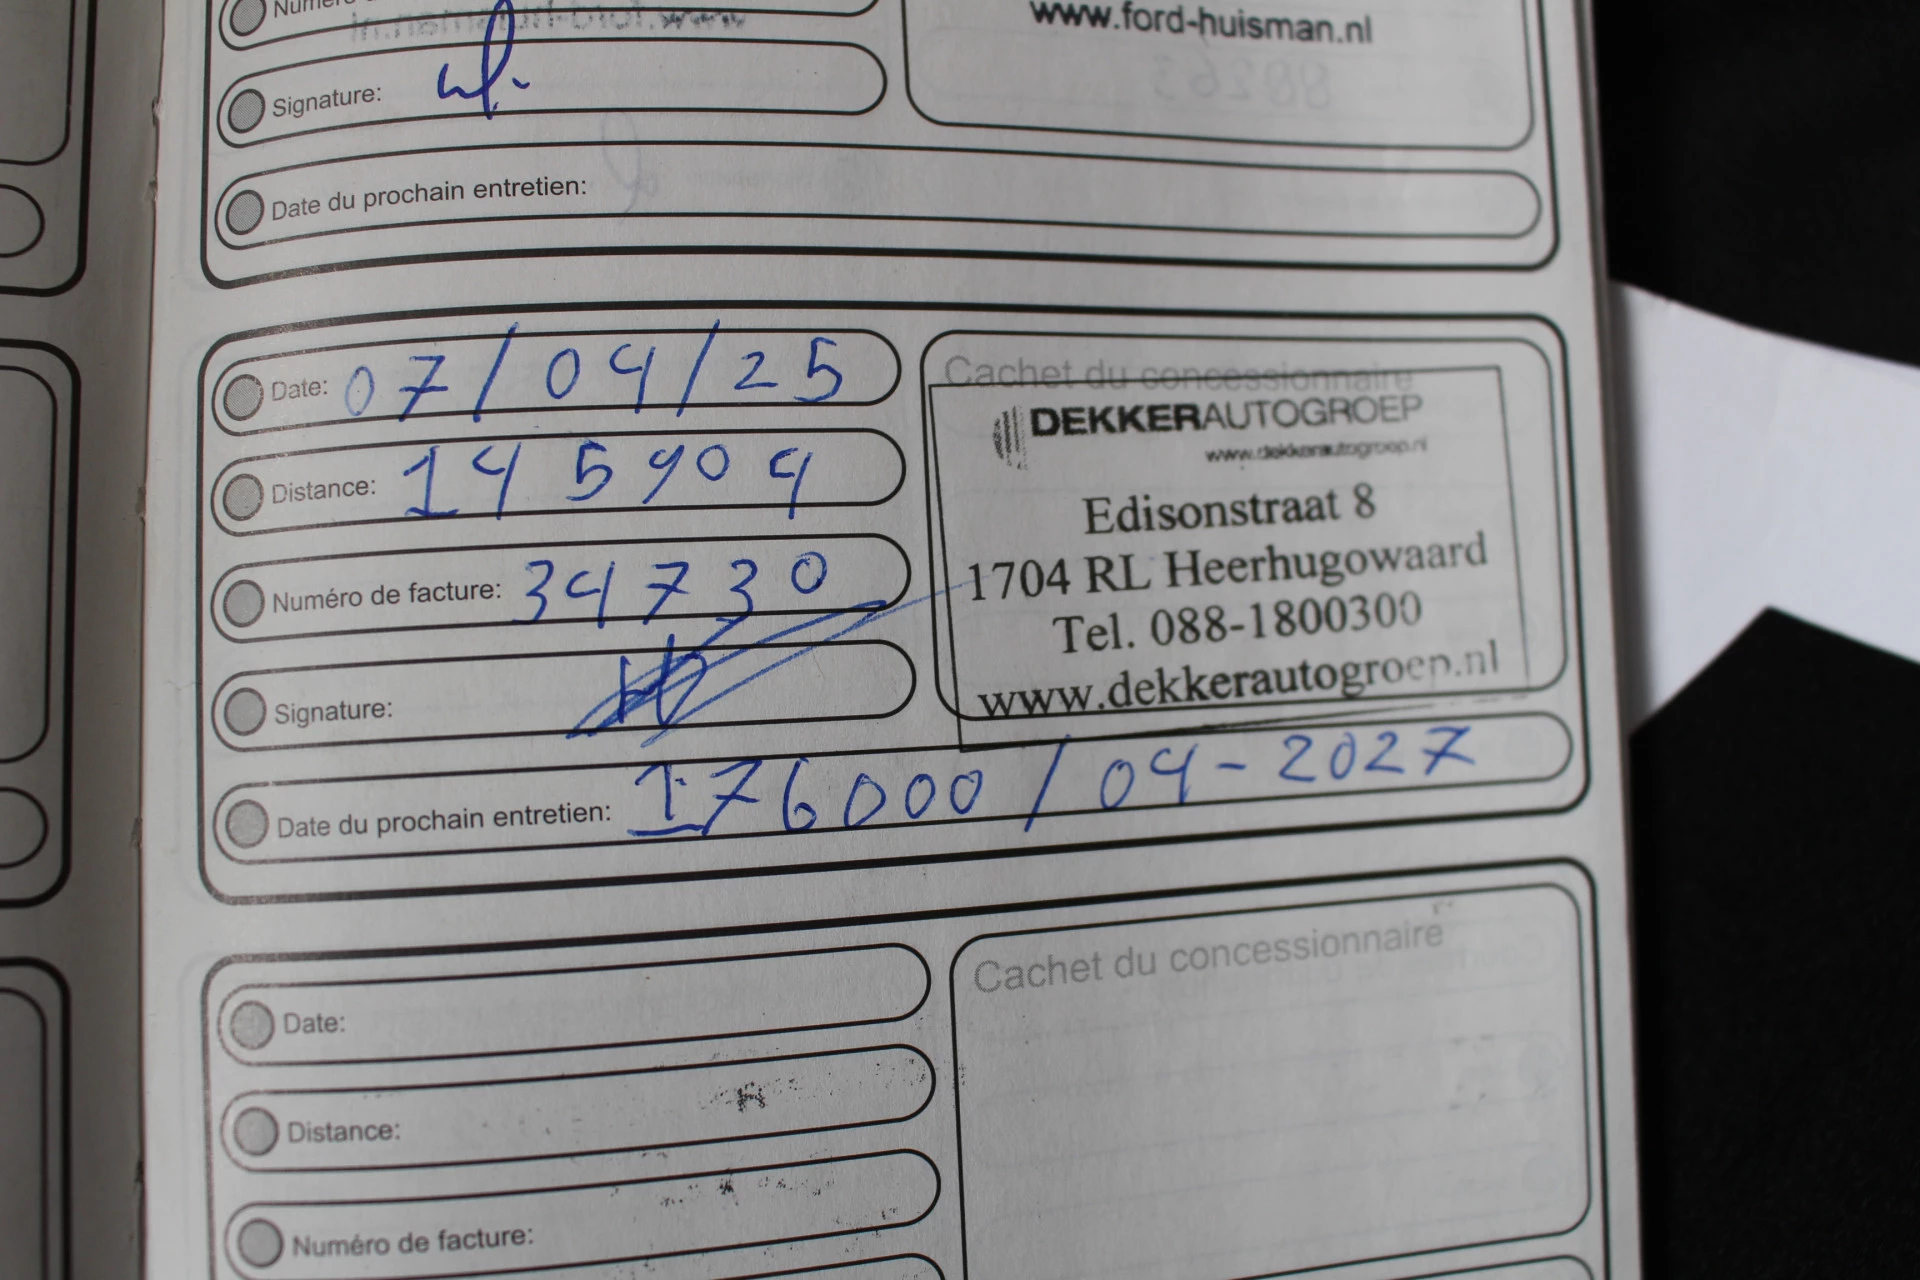 www.ford-huisman.nl
Signature:
Date du prochain entretien:
Date: 07/04/25
Cachet du concessionnaire
DEKKERAUTOGROEP
www.dekkerautogroep.nl
Edisonstraat 8
1704 RL Heerhugowaard
Tel. 088-1800300
www.dekkerautogroep.nl
Distance: 145904
Numéro de facture: 34730
Signature:
Date du prochain entretien: 176000/04-2027
Cachet du concessionnaire
Date:
Distance:
Numéro de facture: